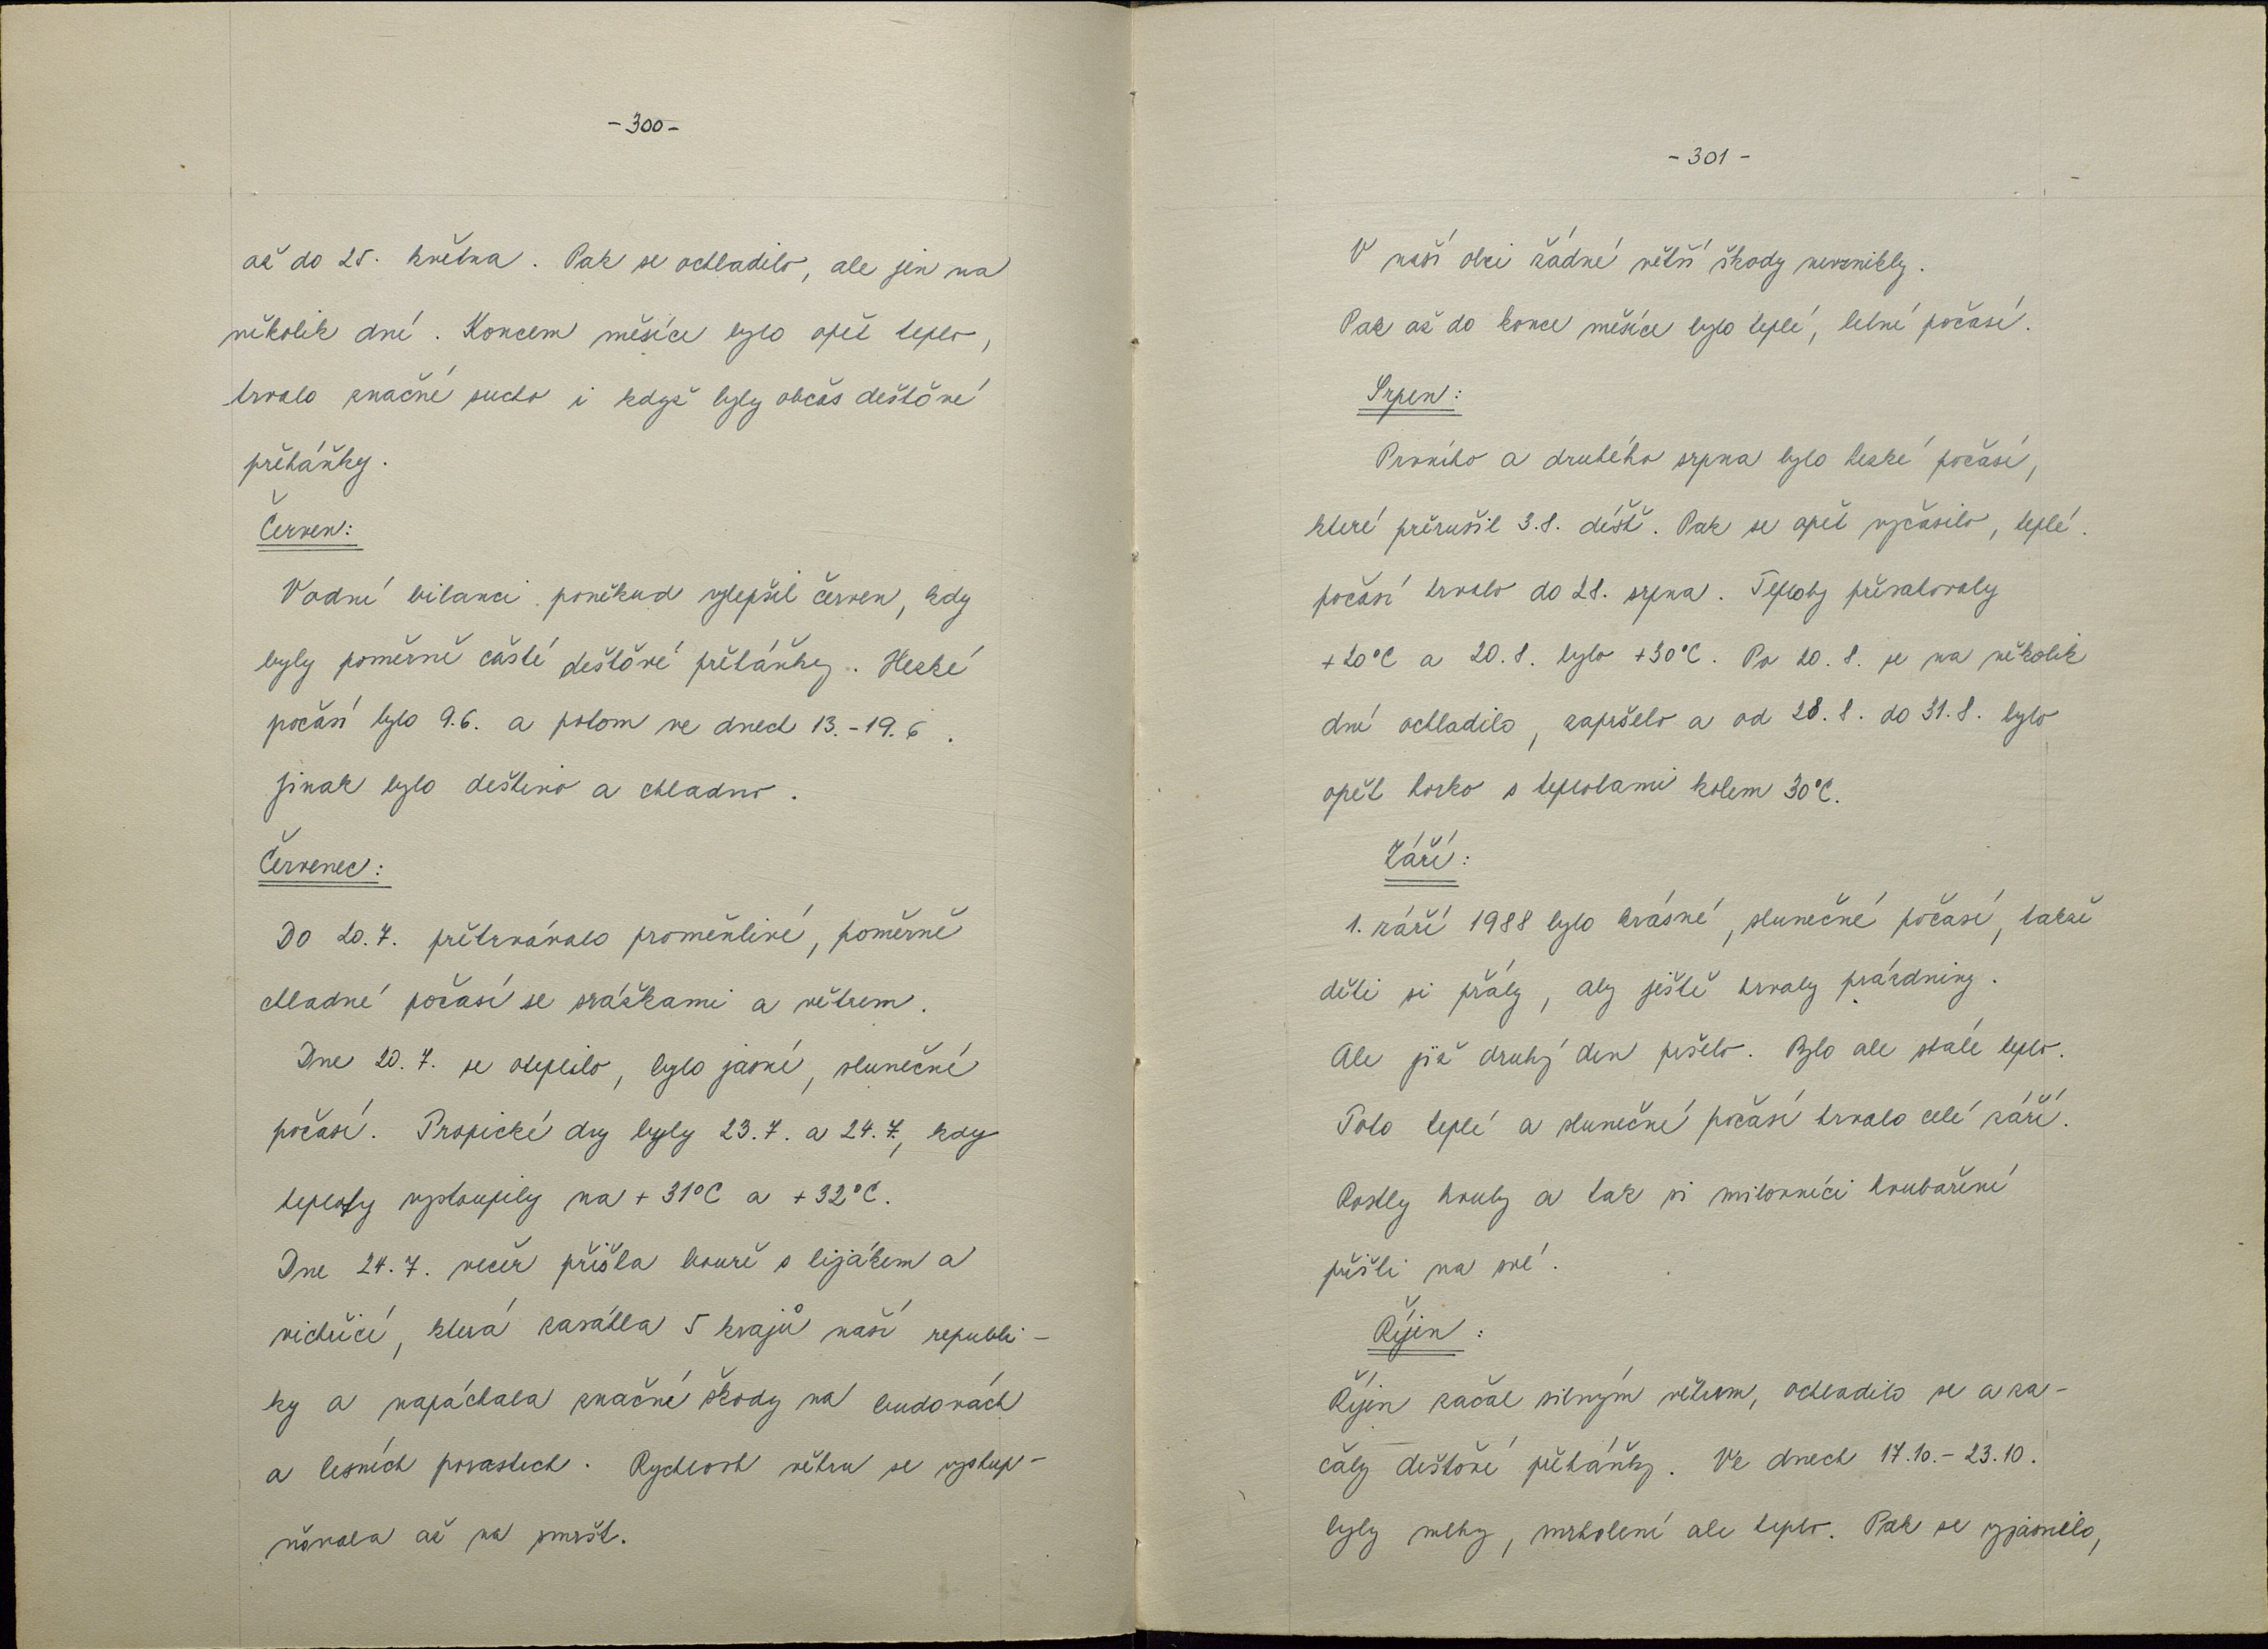 -300-
až do 25. května. Pak se ochladilo, ale jen na
několik dní. Koncem měsíce bylo opět teplo,
trvalo značné sucho i když byly občas dešťové
přeháňky.
Červen:
Vodní bilanci poněkud vylepšil červen, kdy
byly poměrně časté dešťové přeháňky. Hezké
počasí bylo 9.6. a potom ve dnech 13.-19.6.
jinak bylo deštivo a chladno.
Červenec:
Do 20.7. přetrvávalo proměnlivé, poměrně
chladné počasí se srážkami a větrem.
Dne 20.7. se oteplilo, bylo jasné, slunečné
počasí. Tropické dny byly 23.7. a 24.7., kdy
teploty vystoupily na +31°C a +32°C.
Dne 24.7. večer přišla bouře s lijákem a
vichřicí, která zasáhla 5 krajů naší republi-
ky a napáchala značné škody na budovách
a lesních porostech. Rychlost větru se vystup-
ňovala až na smršť.
-301-
V naší obci žádné větší škody nevznikly.
Pak až do konce měsíce bylo teplé, letní počasí.
Srpen:
Prvního a druhého srpna bylo hezké počasí,
které přerušil 3.8. déšť. Pak se opět vyčasilo, teplé
počasí trvalo do 28. srpna. Teploty přesahovaly
+20°C a 20.8. bylo +30°C. Po 20.8. se na několik
dní ochladilo, zapršelo a od 28.8. do 31.8. bylo
opět horko s teplotami kolem 30°C.
Září:
1. září 1988 bylo krásné, slunečné počasí, takže
děti si přály, aby ještě trvaly prázdniny.
Ale již druhý den pršelo. Bylo ale stále teplo.
Toto teplé a slunečné počasí trvalo celé září.
Rostly houby a tak si milovníci houbaření
přišli na své.
Říjen:
Říjen začal silným větrem, ochladilo se a za-
čaly dešťové přeháňky. Ve dnech 17.10.-23.10.
byly mlhy, mrholení ale teplo. Pak se vyjasnilo,